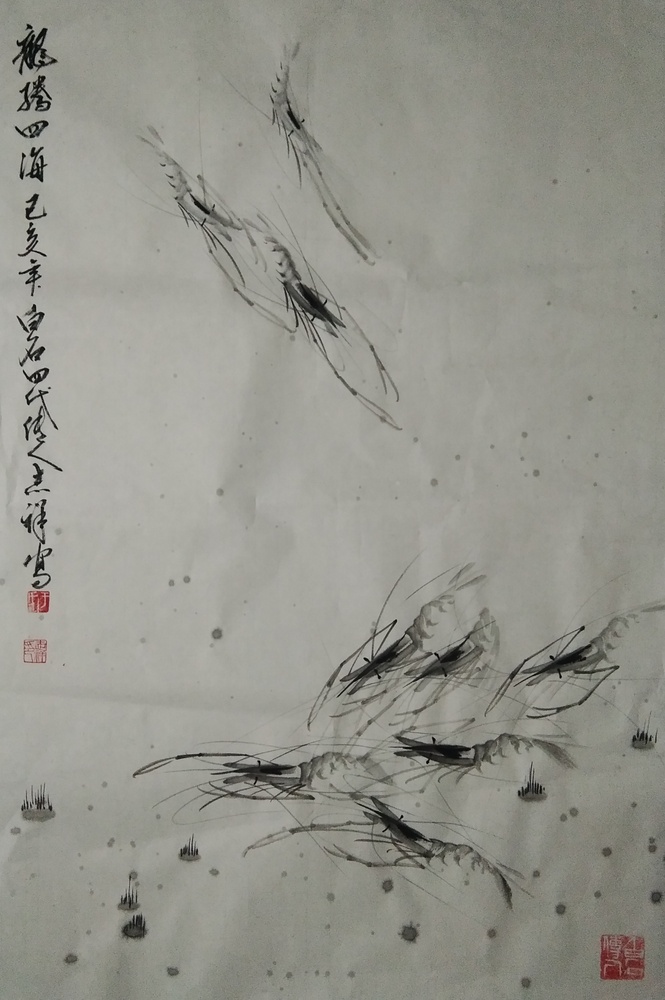 龍腾四海己亥年白石四代传人志祥写